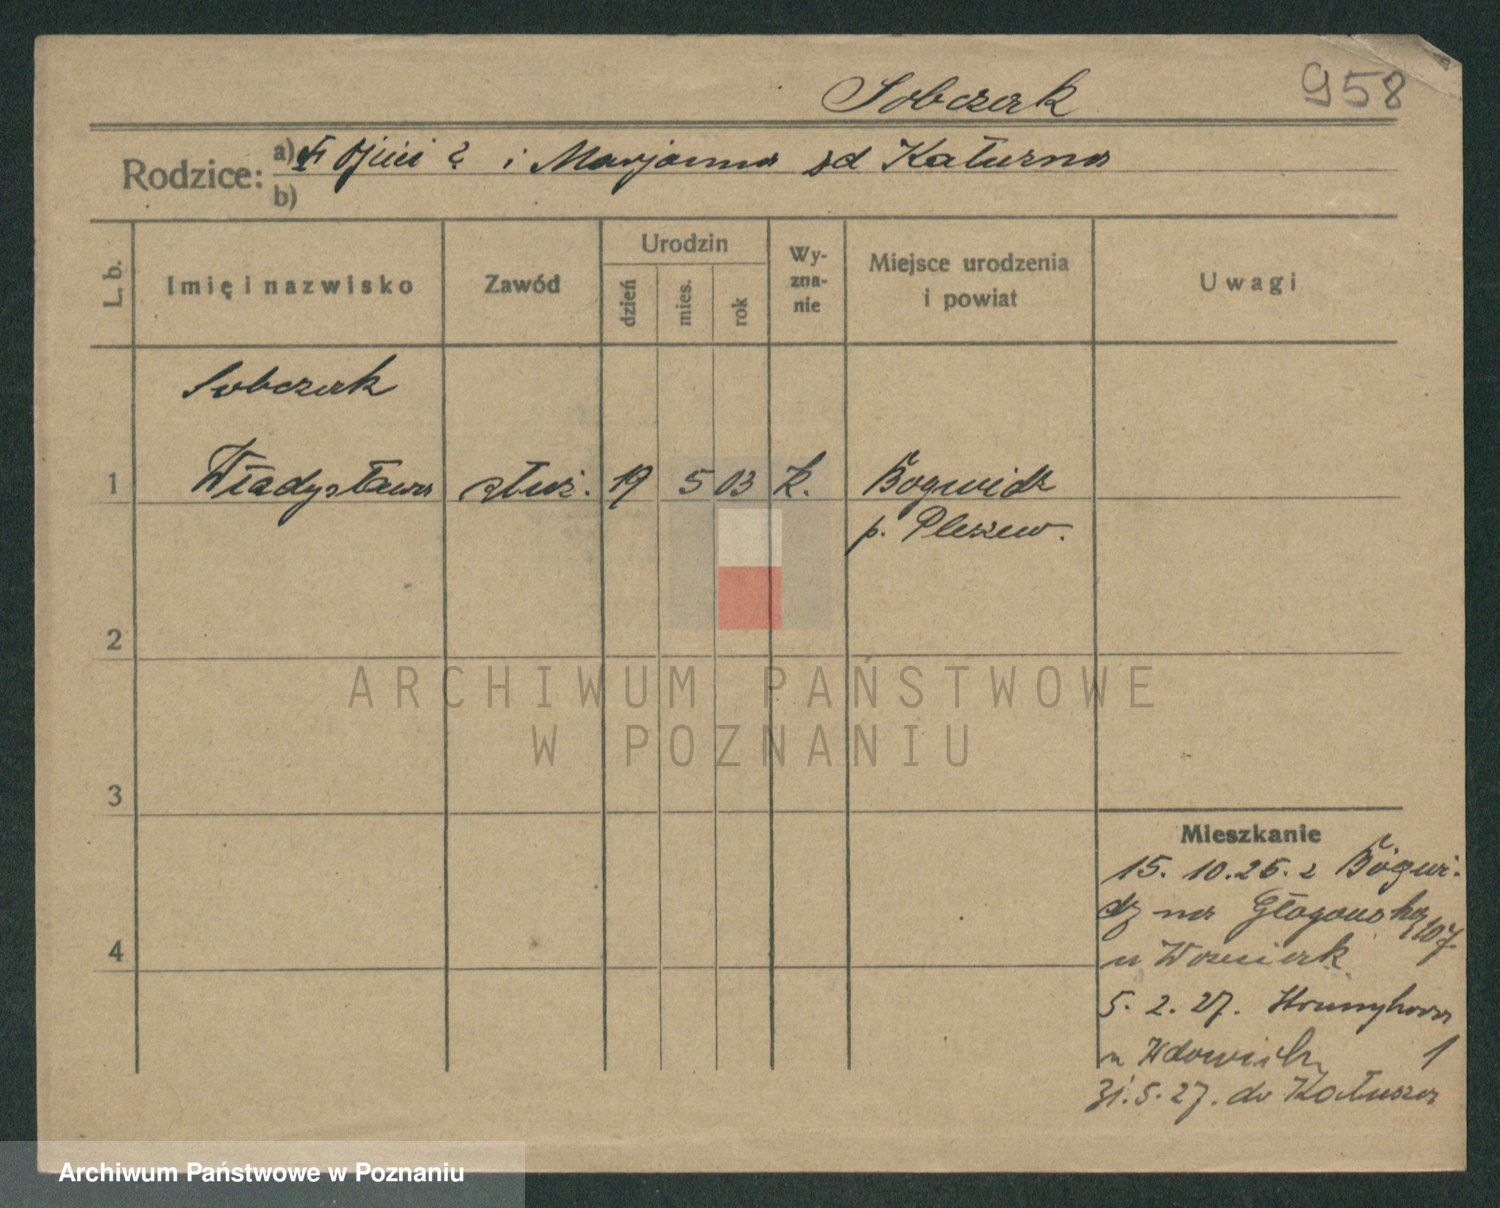 Sobczak 958
Rodzice: a) i Marjanna zd Kałużna
b)
L. b. Imię i nazwisko Zawód Urodzin dzień mies. rok Wyznanie Miejsce urodzenia i powiat Uwagi
Sobczak
1 Władysława służ. 19 5 03 k. Bogwidz
p. Pleszew.
2
3
4
Mieszkanie
15. 10. 26. z Bógwi-
dz na Głogowską 107.
u Woźniak
5. 2. 27.
u 1
31. 5. 27. do
ARCHIWUM PAŃSTWOWE
W POZNANIU
Archiwum Państwowe w Poznaniu